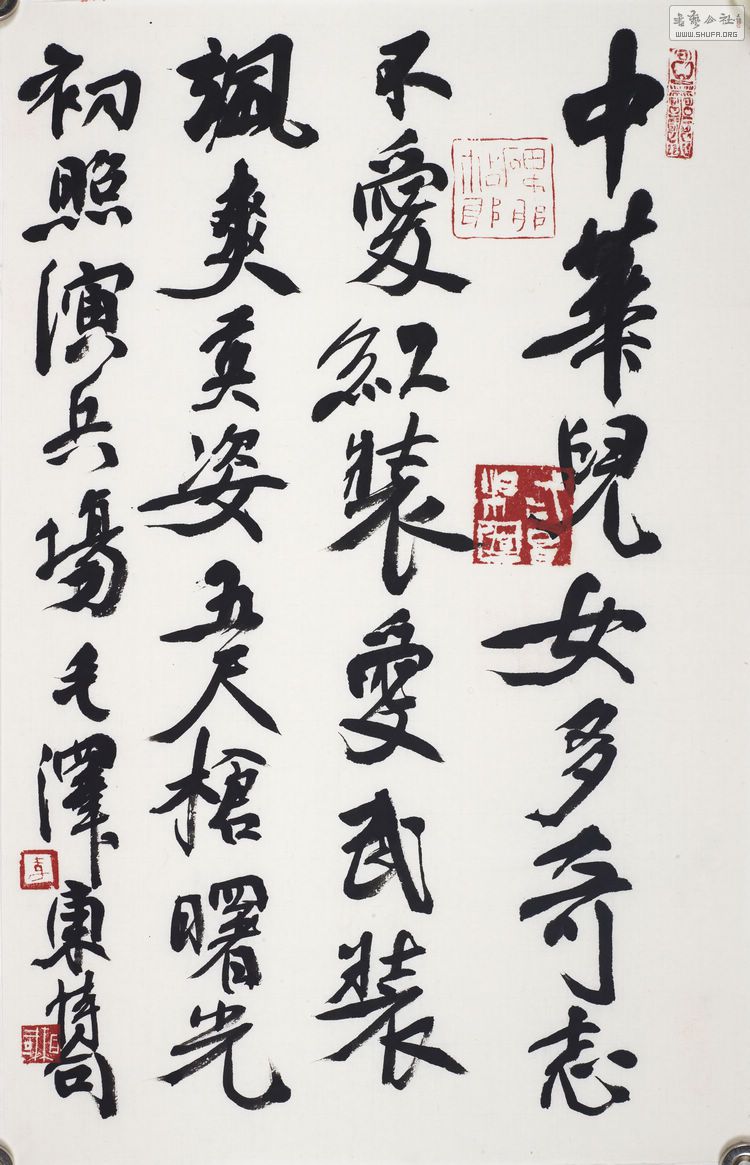 書藝公社
WWW.SHUFA.ORG
中華兒女多奇志
不愛紅裝愛武裝
颯爽英姿五尺槍曙光
初照演兵場毛澤東詩句
碑耶帖耶